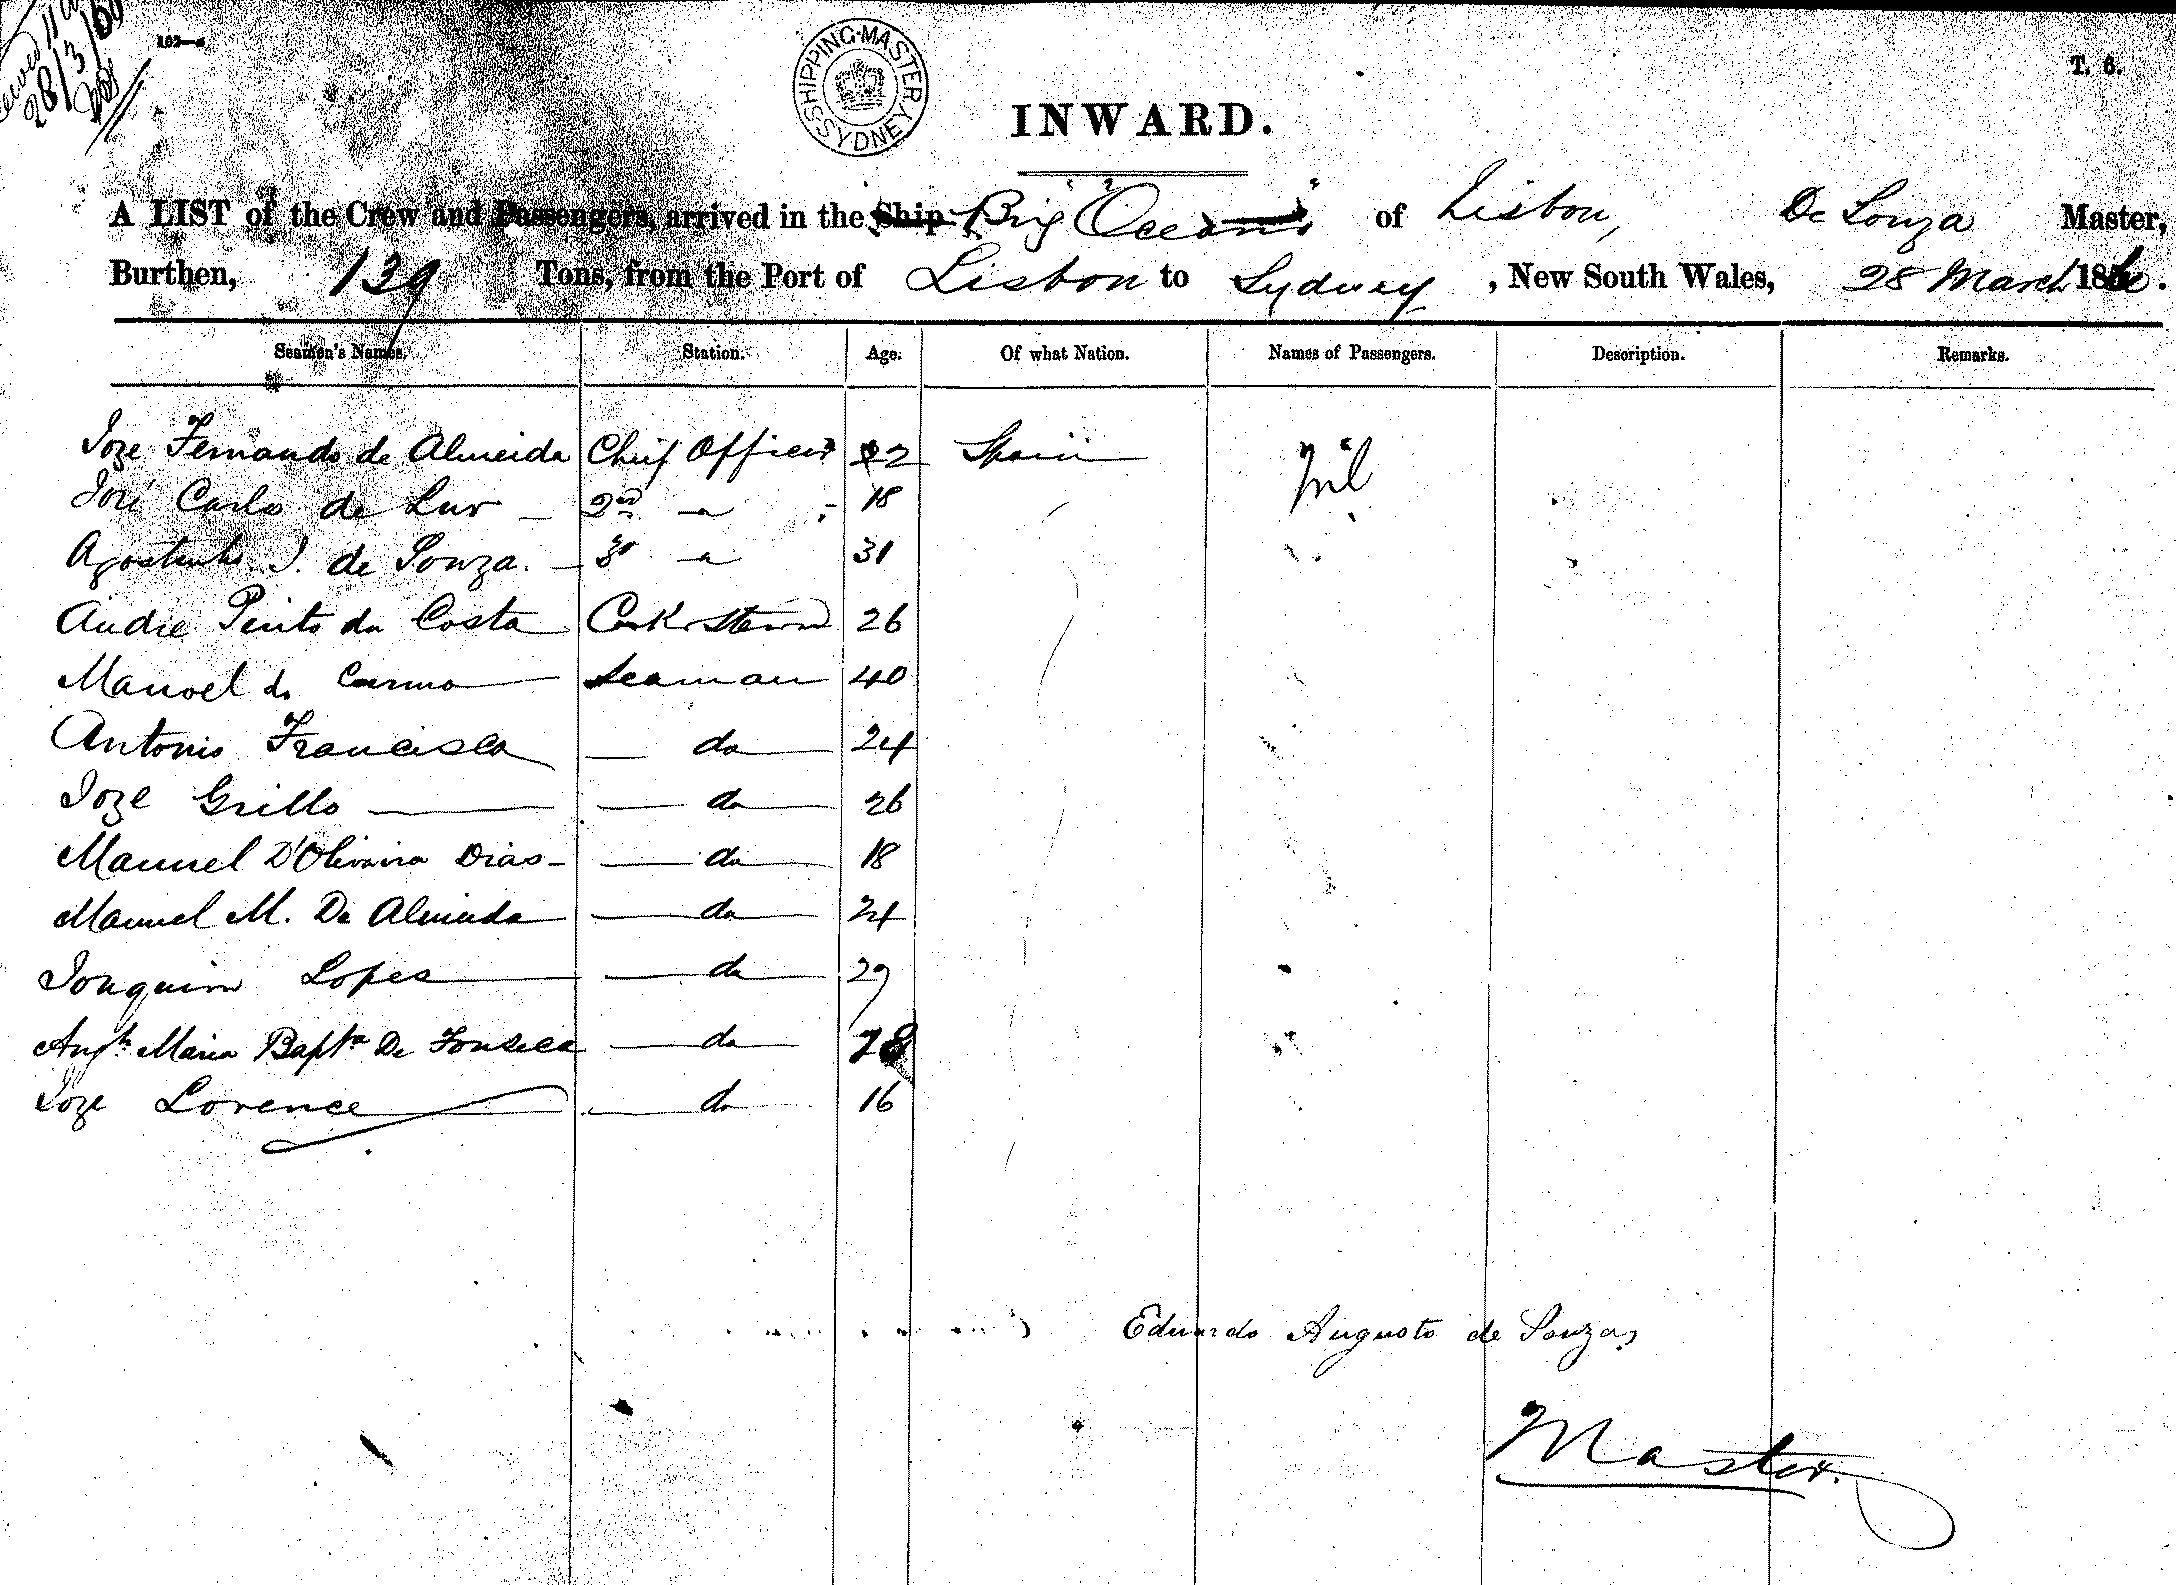 28/3/60
103—a
SHIPPING·MASTER SYDNEY
T. 6.
INWARD.
A LIST of the Crew and Passengers, arrived in the Ship Brig "Ocean" of Lisbon, De Souza Master,
Burthen, 139 Tons, from the Port of Lisbon to Sydney, New South Wales, 28 March 1860.
Seamen's Names. Station. Age. Of what Nation. Names of Passengers. Description. Remarks.
Joze Fernando de Almeida Chief Officer 22 Spain Nil
José Carlo de Luz 2nd " 18
Agostinho J. de Souza. 3d " 31
Andre Pinto da Costa Cook & Steward 26
Manoel do Carmo Seaman 40
Antonio Francisco do 24
Joze Grillo do 26
Manuel D'Olivaira Dias do 18
Manuel M. De Almeida do 24
Joaquim Lopes do 29
Augto Maria Bapta De Fonseca do 28
Joze Lorence do 16
Eduardo Augusto de Souza
Master.